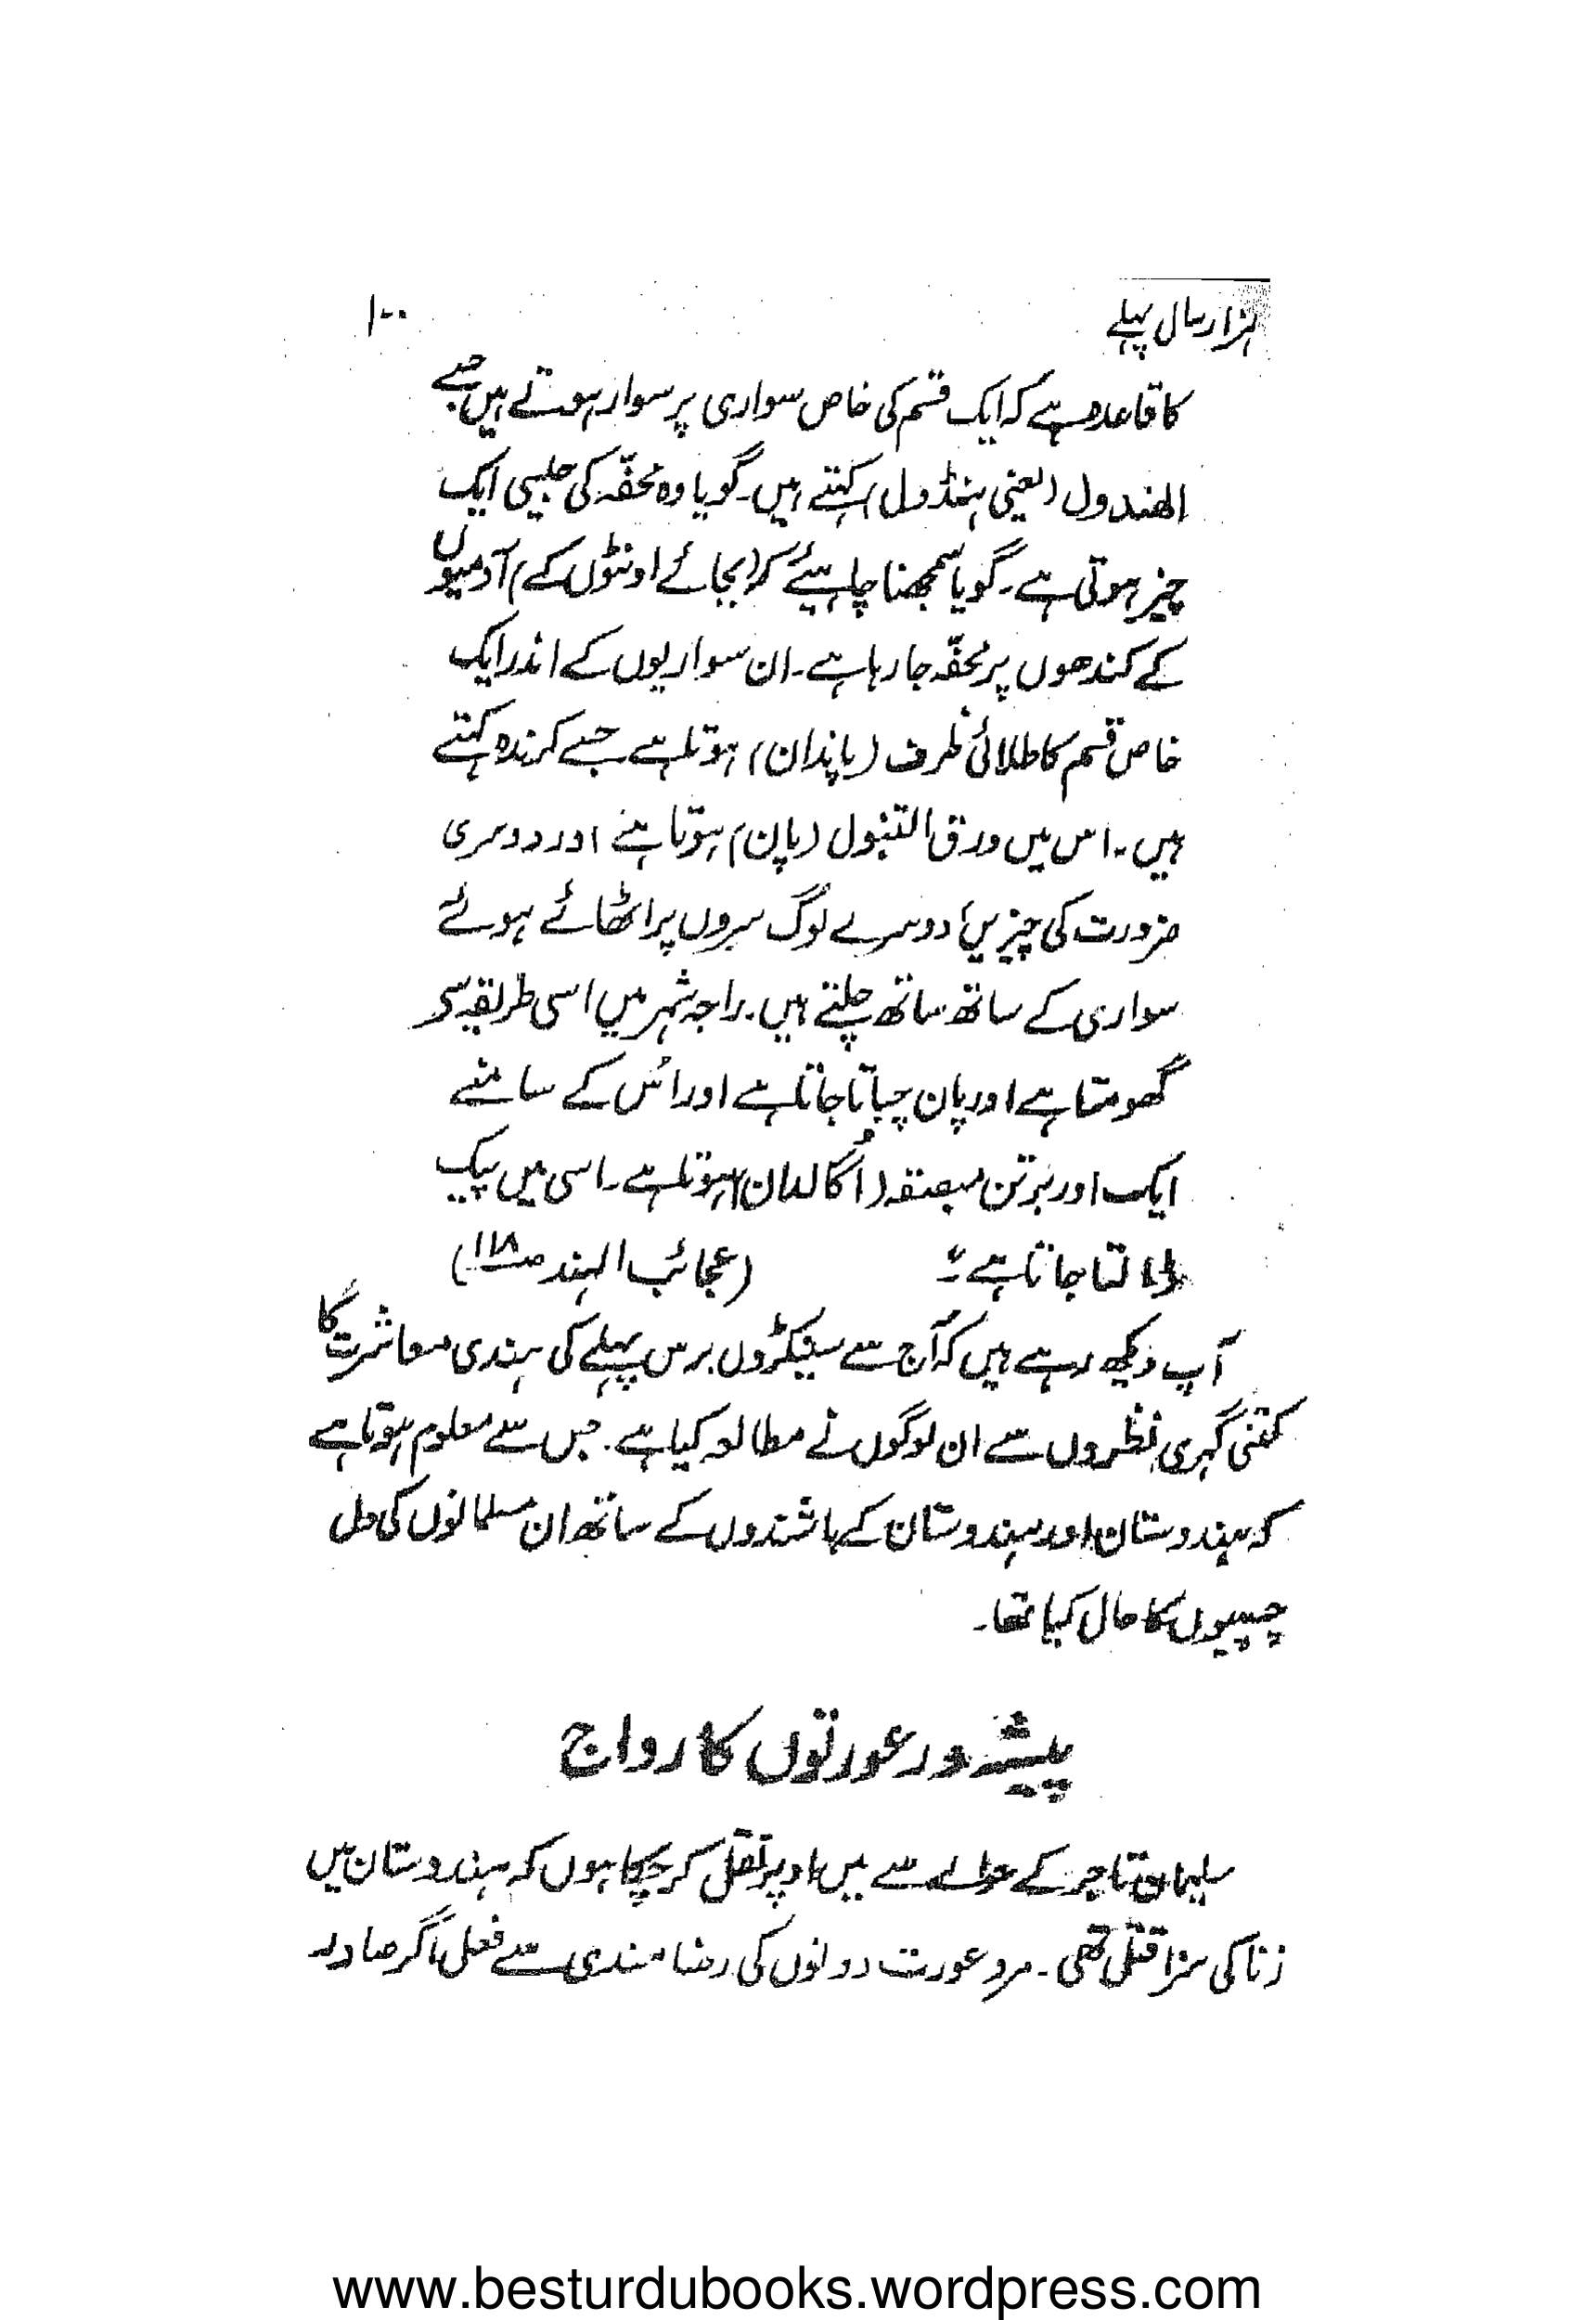 ہزار سال پہلے
۱۰۰
کا قاعدہ ہے کہ ایک قسم کی خاص سواری پر سوار ہوتے ہیں جسے
الهندول (یعنی ہنڈول) کہتے ہیں۔ گویا وہ محفّہ کی جیسی ایک
چیز ہوتی ہے۔ گویا سمجھنا چاہیئے کہ (بجائے اونٹوں کے) آدمیوں
کے کندھوں پر محفّہ جا رہا ہے۔ ان سواریوں کے اندر ایک
خاص قسم کا طلائی ظرف (پاندان) ہوتا ہے جسے کرندہ کہتے
ہیں۔ اس میں ورق التنبول (پان) ہوتا ہے اور دوسری
ضرورت کی چیزیں، دوسرے لوگ سروں پر اٹھائے ہوئے
سواری کے ساتھ ساتھ چلتے ہیں۔ راجہ شہر میں اسی طریقہ سے
گھومتا ہے اور پان چباتا جاتا ہے اور اُس کے سامنے
ایک اور برتن مبصقہ (اُگالدان) ہوتا ہے۔ اسی میں پیک
ڈالتا جاتا ہے۔" (عجائب الہند ص۱۱۸)
آپ دیکھ رہے ہیں کہ آج سے سیکڑوں برس پہلے کی ہندی معاشرت کا
کتنی گہری نظروں سے ان لوگوں نے مطالعہ کیا ہے۔ جس سے معلوم ہوتا ہے
کہ ہندوستان اور ہندوستان کے باشندوں کے ساتھ ان مسلمانوں کی دل
چسپیوں کا حال کیا تھا۔
پیشہ ور عورتوں کا رواج
سلیمان تاجر کے حوالے سے میں اوپر نقل کر چکا ہوں کہ ہندوستان میں
زنا کی سزا قتل تھی۔ مرد عورت دونوں کی رضامندی سے فعل اگر صادر
www.besturdubooks.wordpress.com